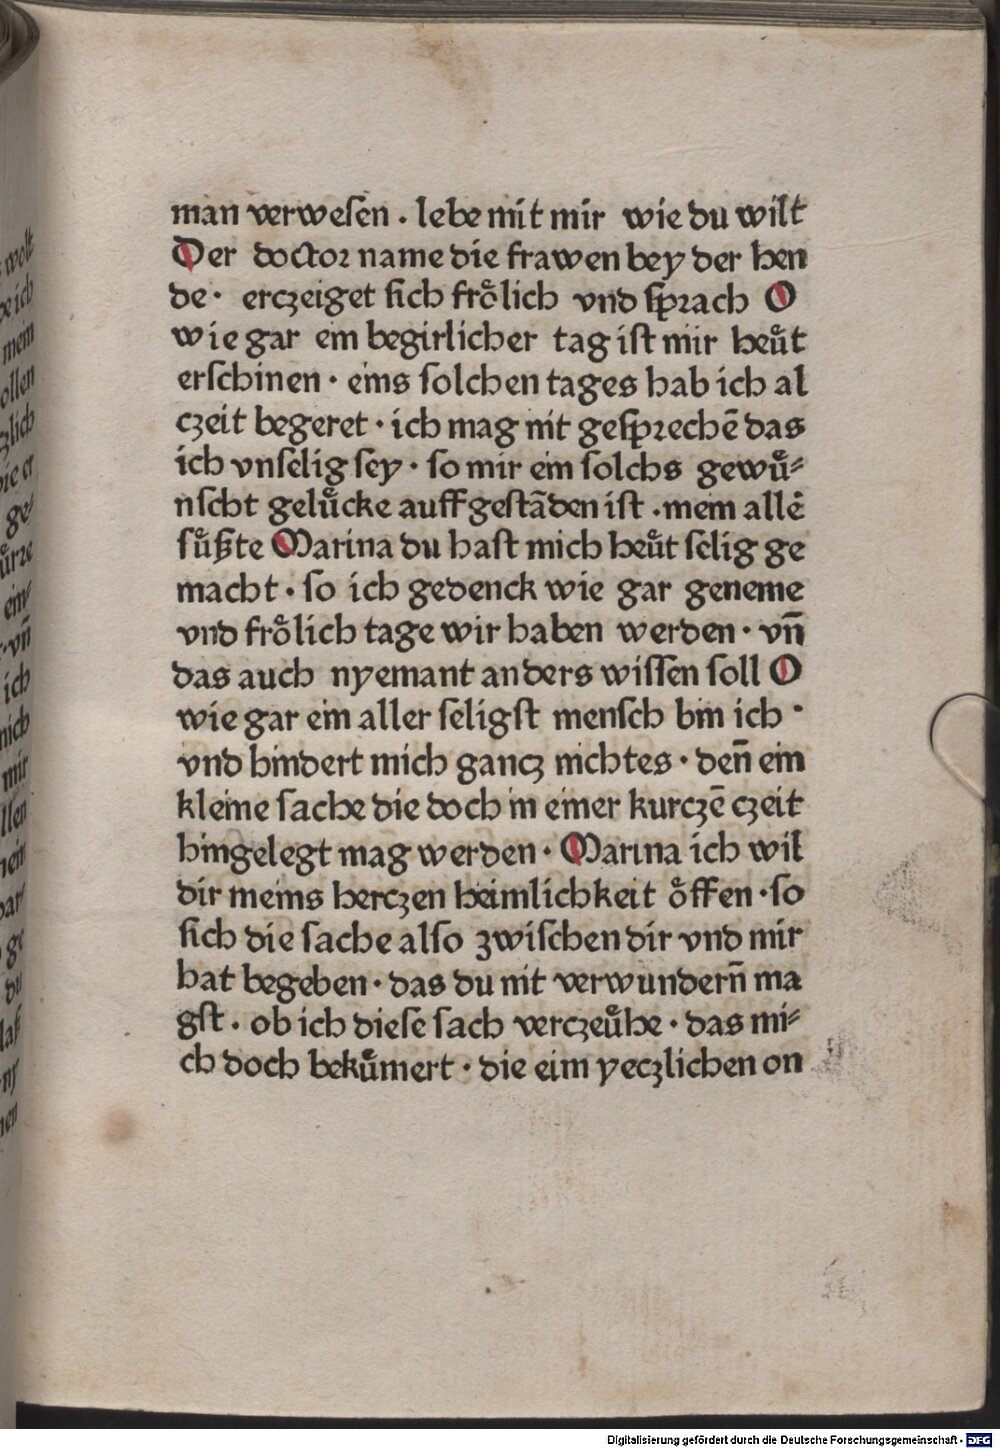 man verweſen . lebe mit mir wie du wilt
Der doctoꝛ name die frawen bey der hen
de · erczeiget ſich froͤlich vnd ſpꝛach O
wie gar ein begirlicher tag iſt mir heuͤt
erſchinen · eins ſolchen tages hab ich al
czeit begeret · ich mag nit geſpꝛechē das
ich vnſelig ſey · ſo mir ein ſolchs gewuͤ⸗
nſcht geluͤcke auff geſtāden iſt · mein allē
ſuͤßte Marina du haſt mich heuͤt ſelig ge
macht · ſo ich gedenck wie gar geneme
vnd froͤlich tage wir haben werden · vn̄
das auch nyemant anders wiſſen ſoll O
wie gar ein aller ſeligſt menſch bin ich ·
vnd hindert mich gancz nichtes · den̄ ein
kleine ſache die doch in einer kurczē czeit
hingelegt mag werden · Marina ich wil
dir meins herczen heimlichkeit oͤffen · ſo
ſich die ſache alſo zwiſchen dir vnd mir
hat begeben · das du nit verwundern̄ ma
gſt . ob ich dieſe ſach verczeuͤhe · das mi⸗
ch doch bekuͤmert · die eim yeczlichen on
Digitalisierung gefördert durch die Deutsche Forschungsgemeinschaft - DFG